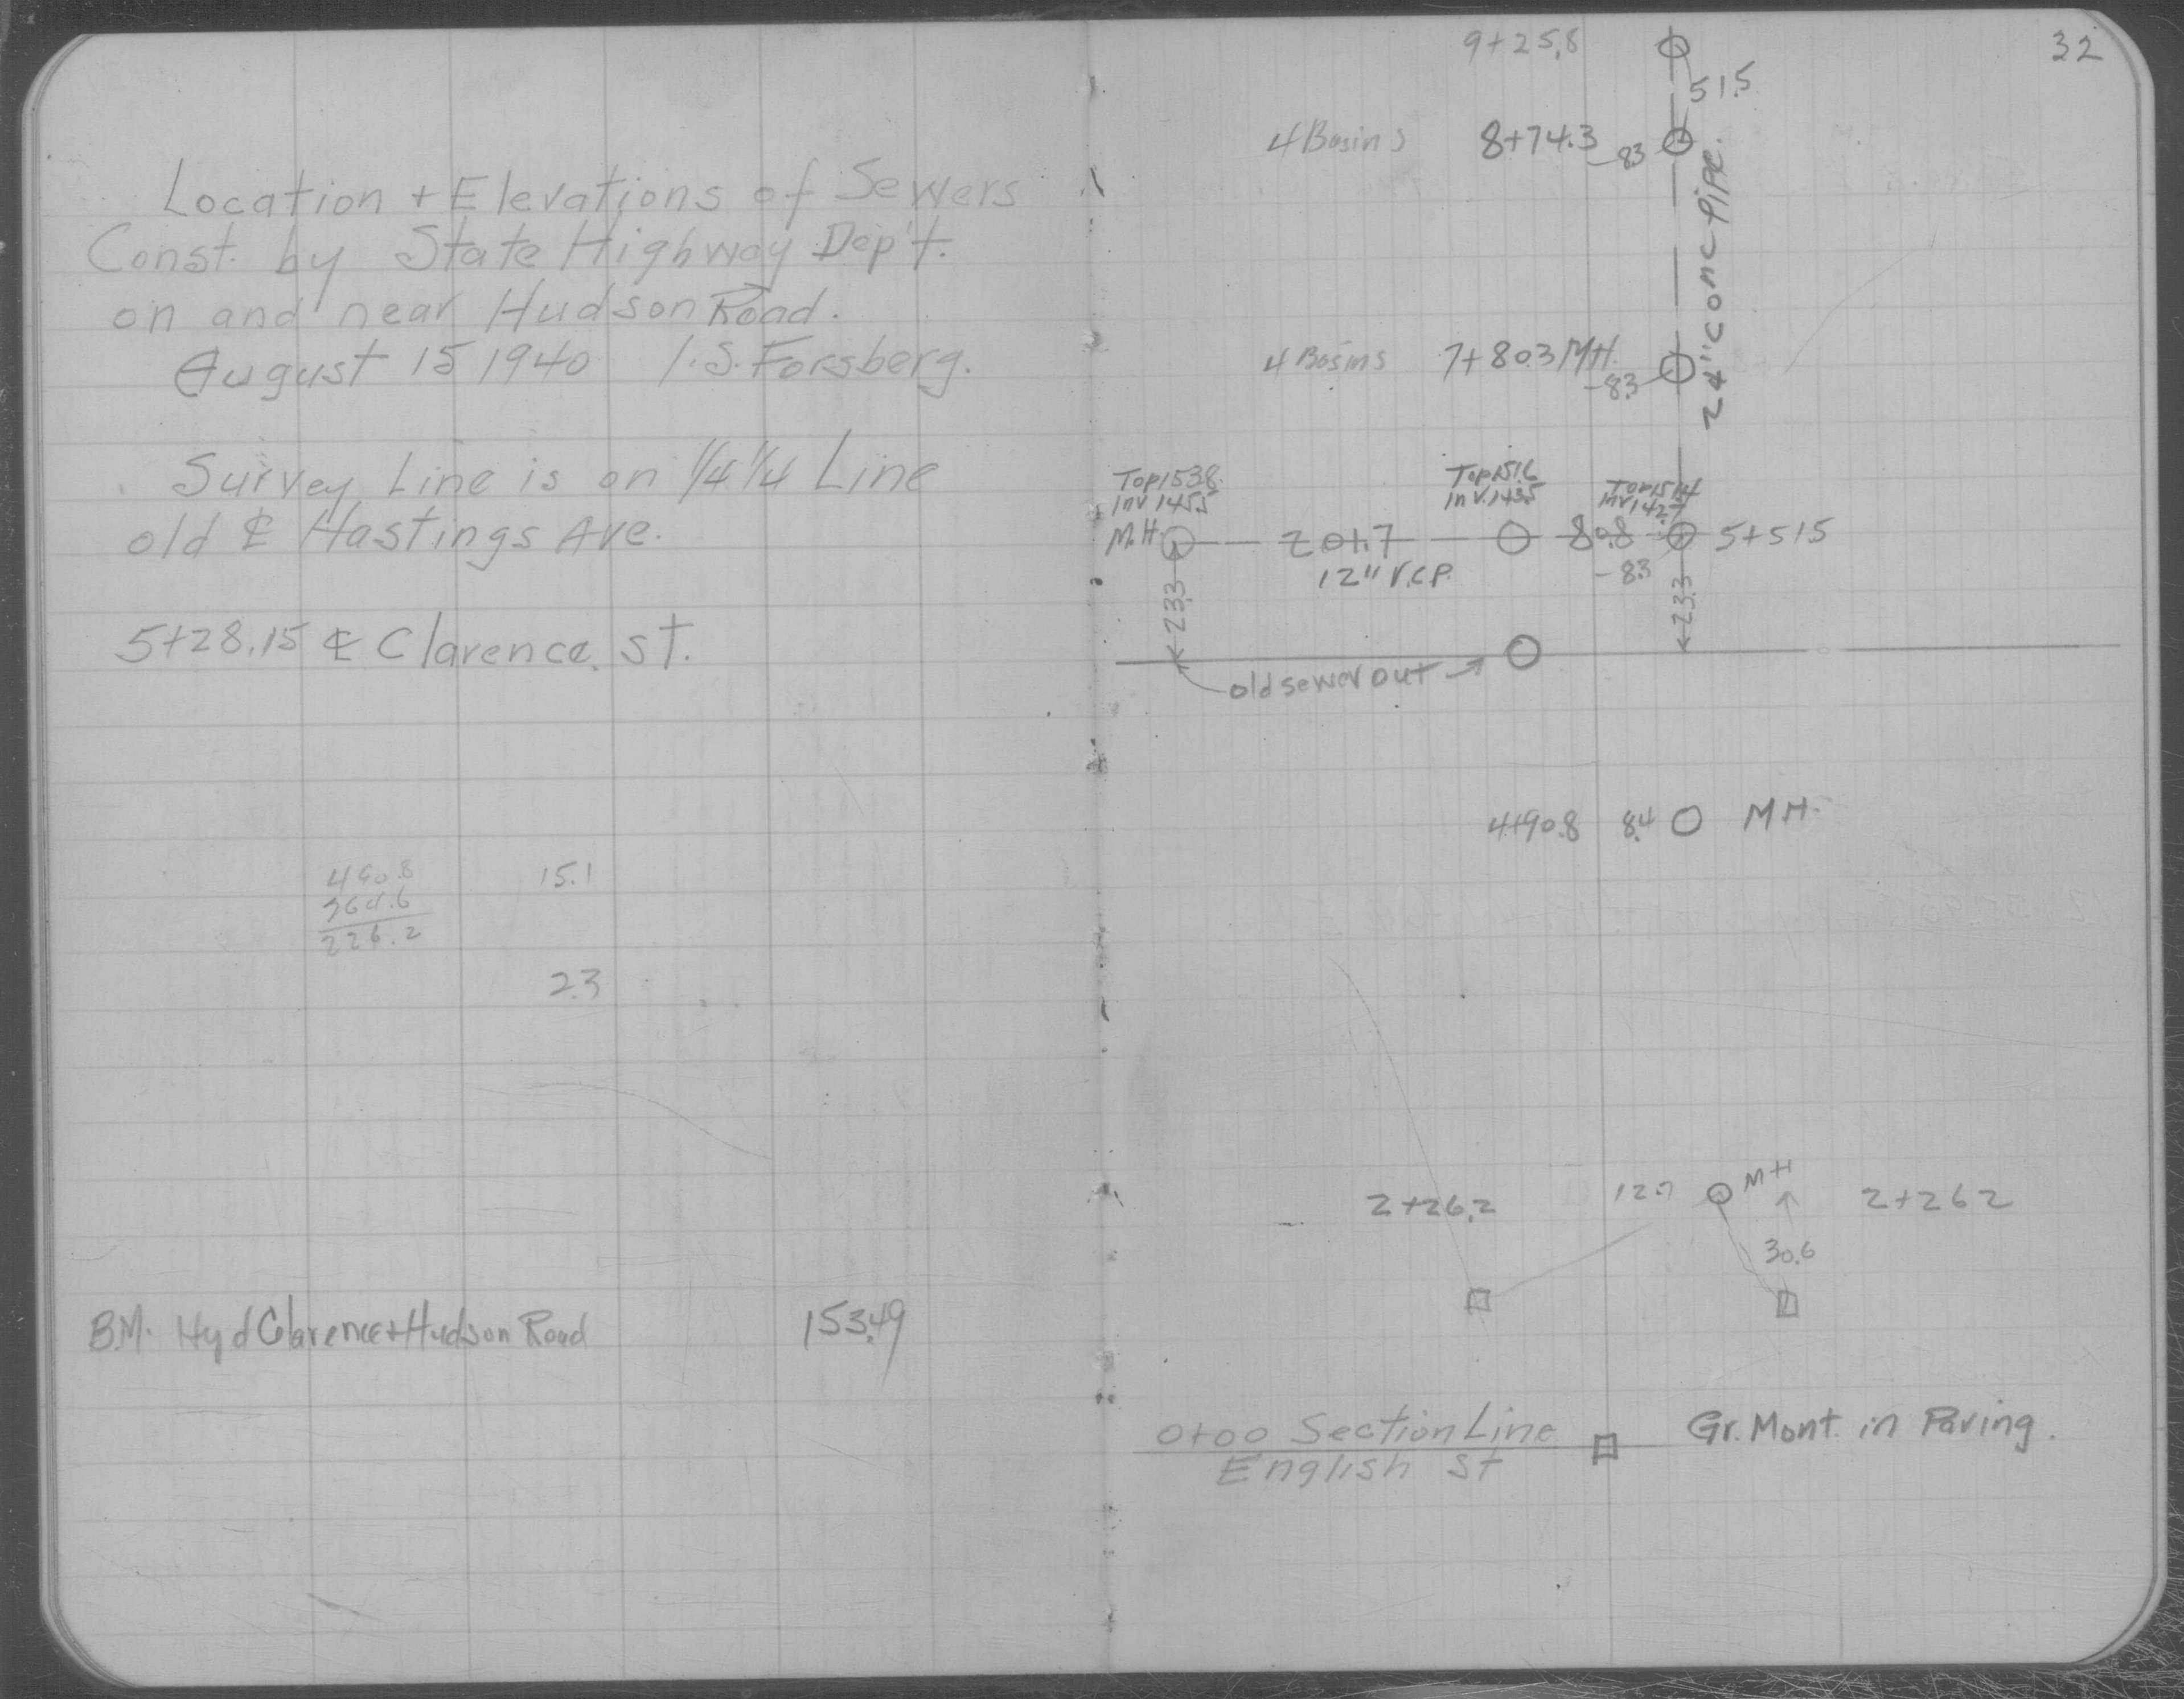 Location + Elevations of Sewers
Const. by State Highway Dep't.
on and near Hudson Road.
August 15 1940 I.S. Forsberg.
Survey Line is on 1/4 1/4 Line
old ℄ Hastings Ave.
5+28.15 ℄ Clarence St.
490.8 15.1
264.6
226.2
2.3
B.M. Hyd Clarence + Hudson Road 153.49
32
9+25.8
51.5
4 Basins 8+74.3 -8.3
24" conc pipe.
4 Basins 7+80.3 MH.
-8.3
Top 153.8
Inv 145.5
M.H.
Top 151.6
Inv. 143.5
Top 151.4
Inv 142.7
201.7 80.8 5+51.5
12" V.C.P. -8.3
23.3 23.3
old sewer out
4+90.8 8.4 M.H.
2+26.2 12.7 MH 2+26.2
30.6
0+00 Section Line Gr. Mont. in Paving.
English St